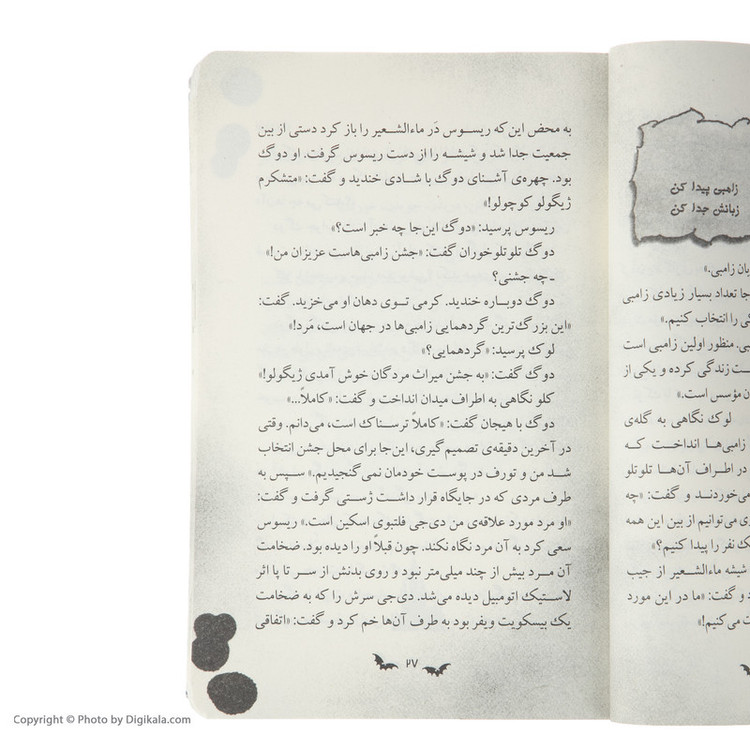 زامبی پیدا کن
زبانش جدا کن
بان زامبی.»
جا تعداد بسیار زیادی زامبی
کی را انتخاب کنیم.»
بی. منظور اولین زامبی است
ست زندگی کرده و یکی از
ن مؤسس است.»
لوک نگاهی به گله‌ی
زامبی‌ها انداخت که
در اطراف آن‌ها تلوتلو
می‌خوردند و گفت: «چه
ی می‌توانیم از بین این همه
ک نفر را پیدا کنیم؟»
شیشه ماءالشعیر از جیب
د و گفت: «ما در این مورد
ت می‌کنیم!»
به محض این‌که ریسوس دَر ماءالشعیر را باز کرد دستی از بین
جمعیت جدا شد و شیشه را از دست ریسوس گرفت. او دوگ
بود. چهره‌ی آشنای دوگ با شادی خندید و گفت: «متشکرم
ژیگولو کوچولو!»
ریسوس پرسید: «دوگ این‌جا چه خبر است؟»
دوگ تلوتلوخوران گفت: «جشن زامبی‌هاست عزیزان من!»
ـ چه جشنی؟
دوگ دوباره خندید. کرمی توی دهان او می‌خزید. گفت:
«این بزرگ‌ترین گردهمایی زامبی‌ها در جهان است، مَرد!»
لوک پرسید: «گردهمایی؟»
دوگ گفت: «به جشن میراث مردگان خوش آمدی ژیگولو!»
کلو نگاهی به اطراف میدان انداخت و گفت: «کاملاً...»
دوگ با هیجان گفت: «کاملاً ترسناک است، می‌دانم. وقتی
در آخرین دقیقه‌ی تصمیم‌گیری، این‌جا برای محل جشن انتخاب
شد من و تورف در پوست خودمان نمی‌گنجیدیم.» سپس به
طرف مردی که در جایگاه قرار داشت ژستی گرفت و گفت:
«او مرد مورد علاقه‌ی من دی‌جی فلتبوی اسکین است.» ریسوس
سعی کرد به آن مرد نگاه نکند. چون قبلاً او را دیده بود. ضخامت
آن مرد بیش از چند میلی‌متر نبود و روی بدنش از سر تا پا اثر
لاستیک اتومبیل دیده می‌شد. دی‌جی سرش را که به ضخامت
یک بیسکویت ویفر بود به طرف آن‌ها خم کرد و گفت: «اتفاقی
۲۷
Copyright © Photo by Digikala.com